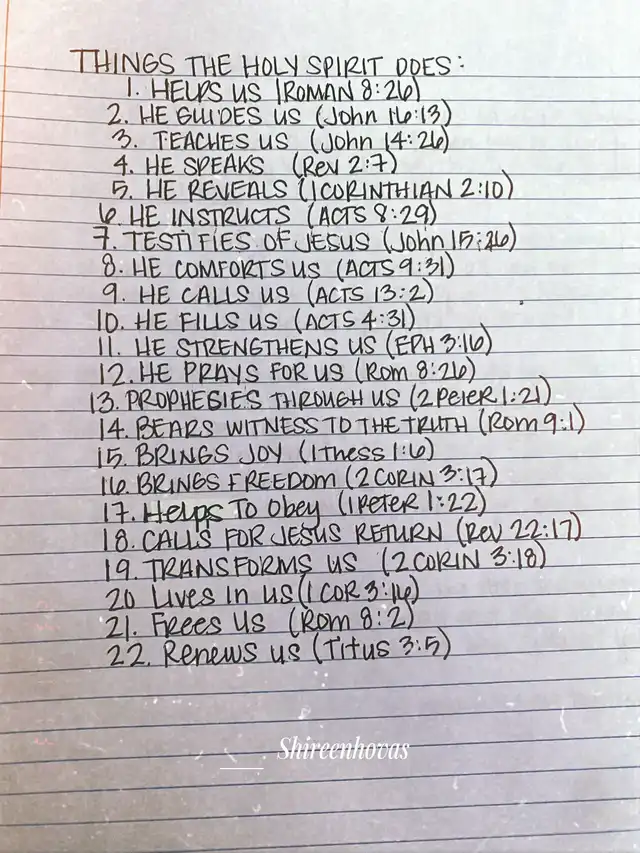 THINGS THE HOLY SPIRIT DOES:
1. HELPS US (ROMAN 8:26)
2. HE GUIDES US (John 16:13)
3. TEACHES US (John 14:26)
4. HE SPEAKS (Rev 2:7)
5. HE REVEALS (1 CORINTHIAN 2:10)
6 HE INSTRUCTS (ACTS 8:29)
7. TESTIFIES OF JESUS (John 15:26)
8. HE COMFORTS US (ACTS 9:31)
9. HE CALLS US (ACTS 13:2)
10. HE FILLS US (ACTS 4:31)
11. HE STRENGTHENS US (EPH 3:16)
12. HE PRAYS FOR US (Rom 8:26)
13. PROPHECIES THROUGH US (2 Peter 1:21)
14. BEARS WITNESS TO THE TRUTH (Rom 9:1)
15. BRINGS JOY (1 Thess 1:6)
16. BRINGS FREEDOM (2 CORIN 3:17)
17. Helps To Obey (1 Peter 1:22)
18. CALLS FOR JESUS RETURN (Rev 22:17)
19. TRANSFORMS US (2 CORIN 3:18)
20 Lives in us (1 COR 3:16)
21. Frees us (Rom 8:2)
22. Renews us (Titus 3:5)
Shireenhovas